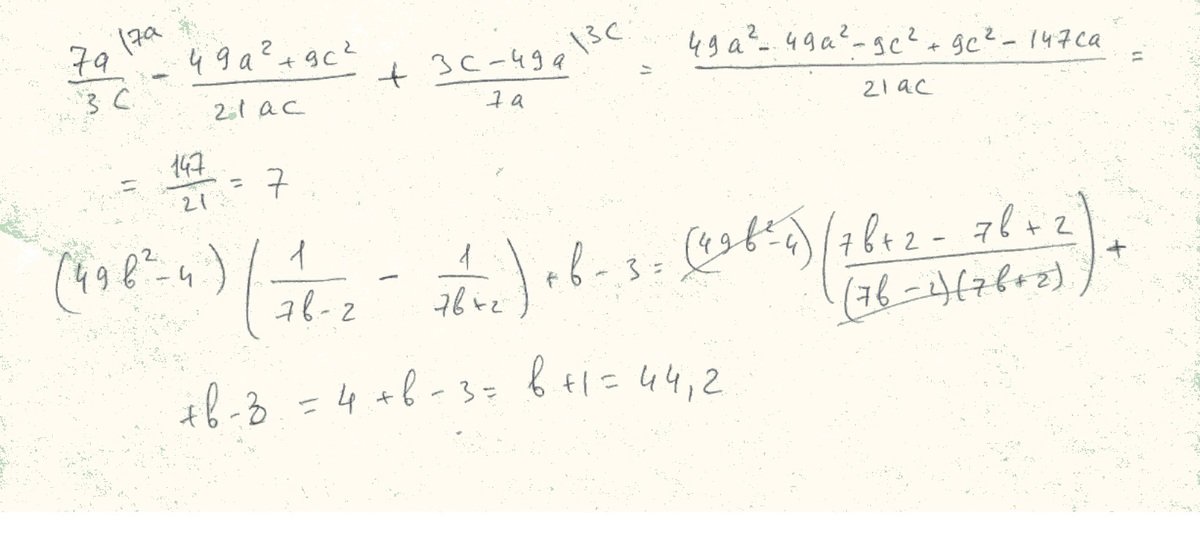 7a\7a/3c - 49a²+9c²/21ac + 3c-49a\3c/7a = 49a²-49a²-9c²+9c²-147ca/21ac =
= 147/21 = 7
(49b²-4)(1/7b-2 - 1/7b+2)+b-3=(49b²-4)(7b+2-7b+2/(7b-2)(7b+2))+
+b-3 = 4+b-3= b+1=44,2